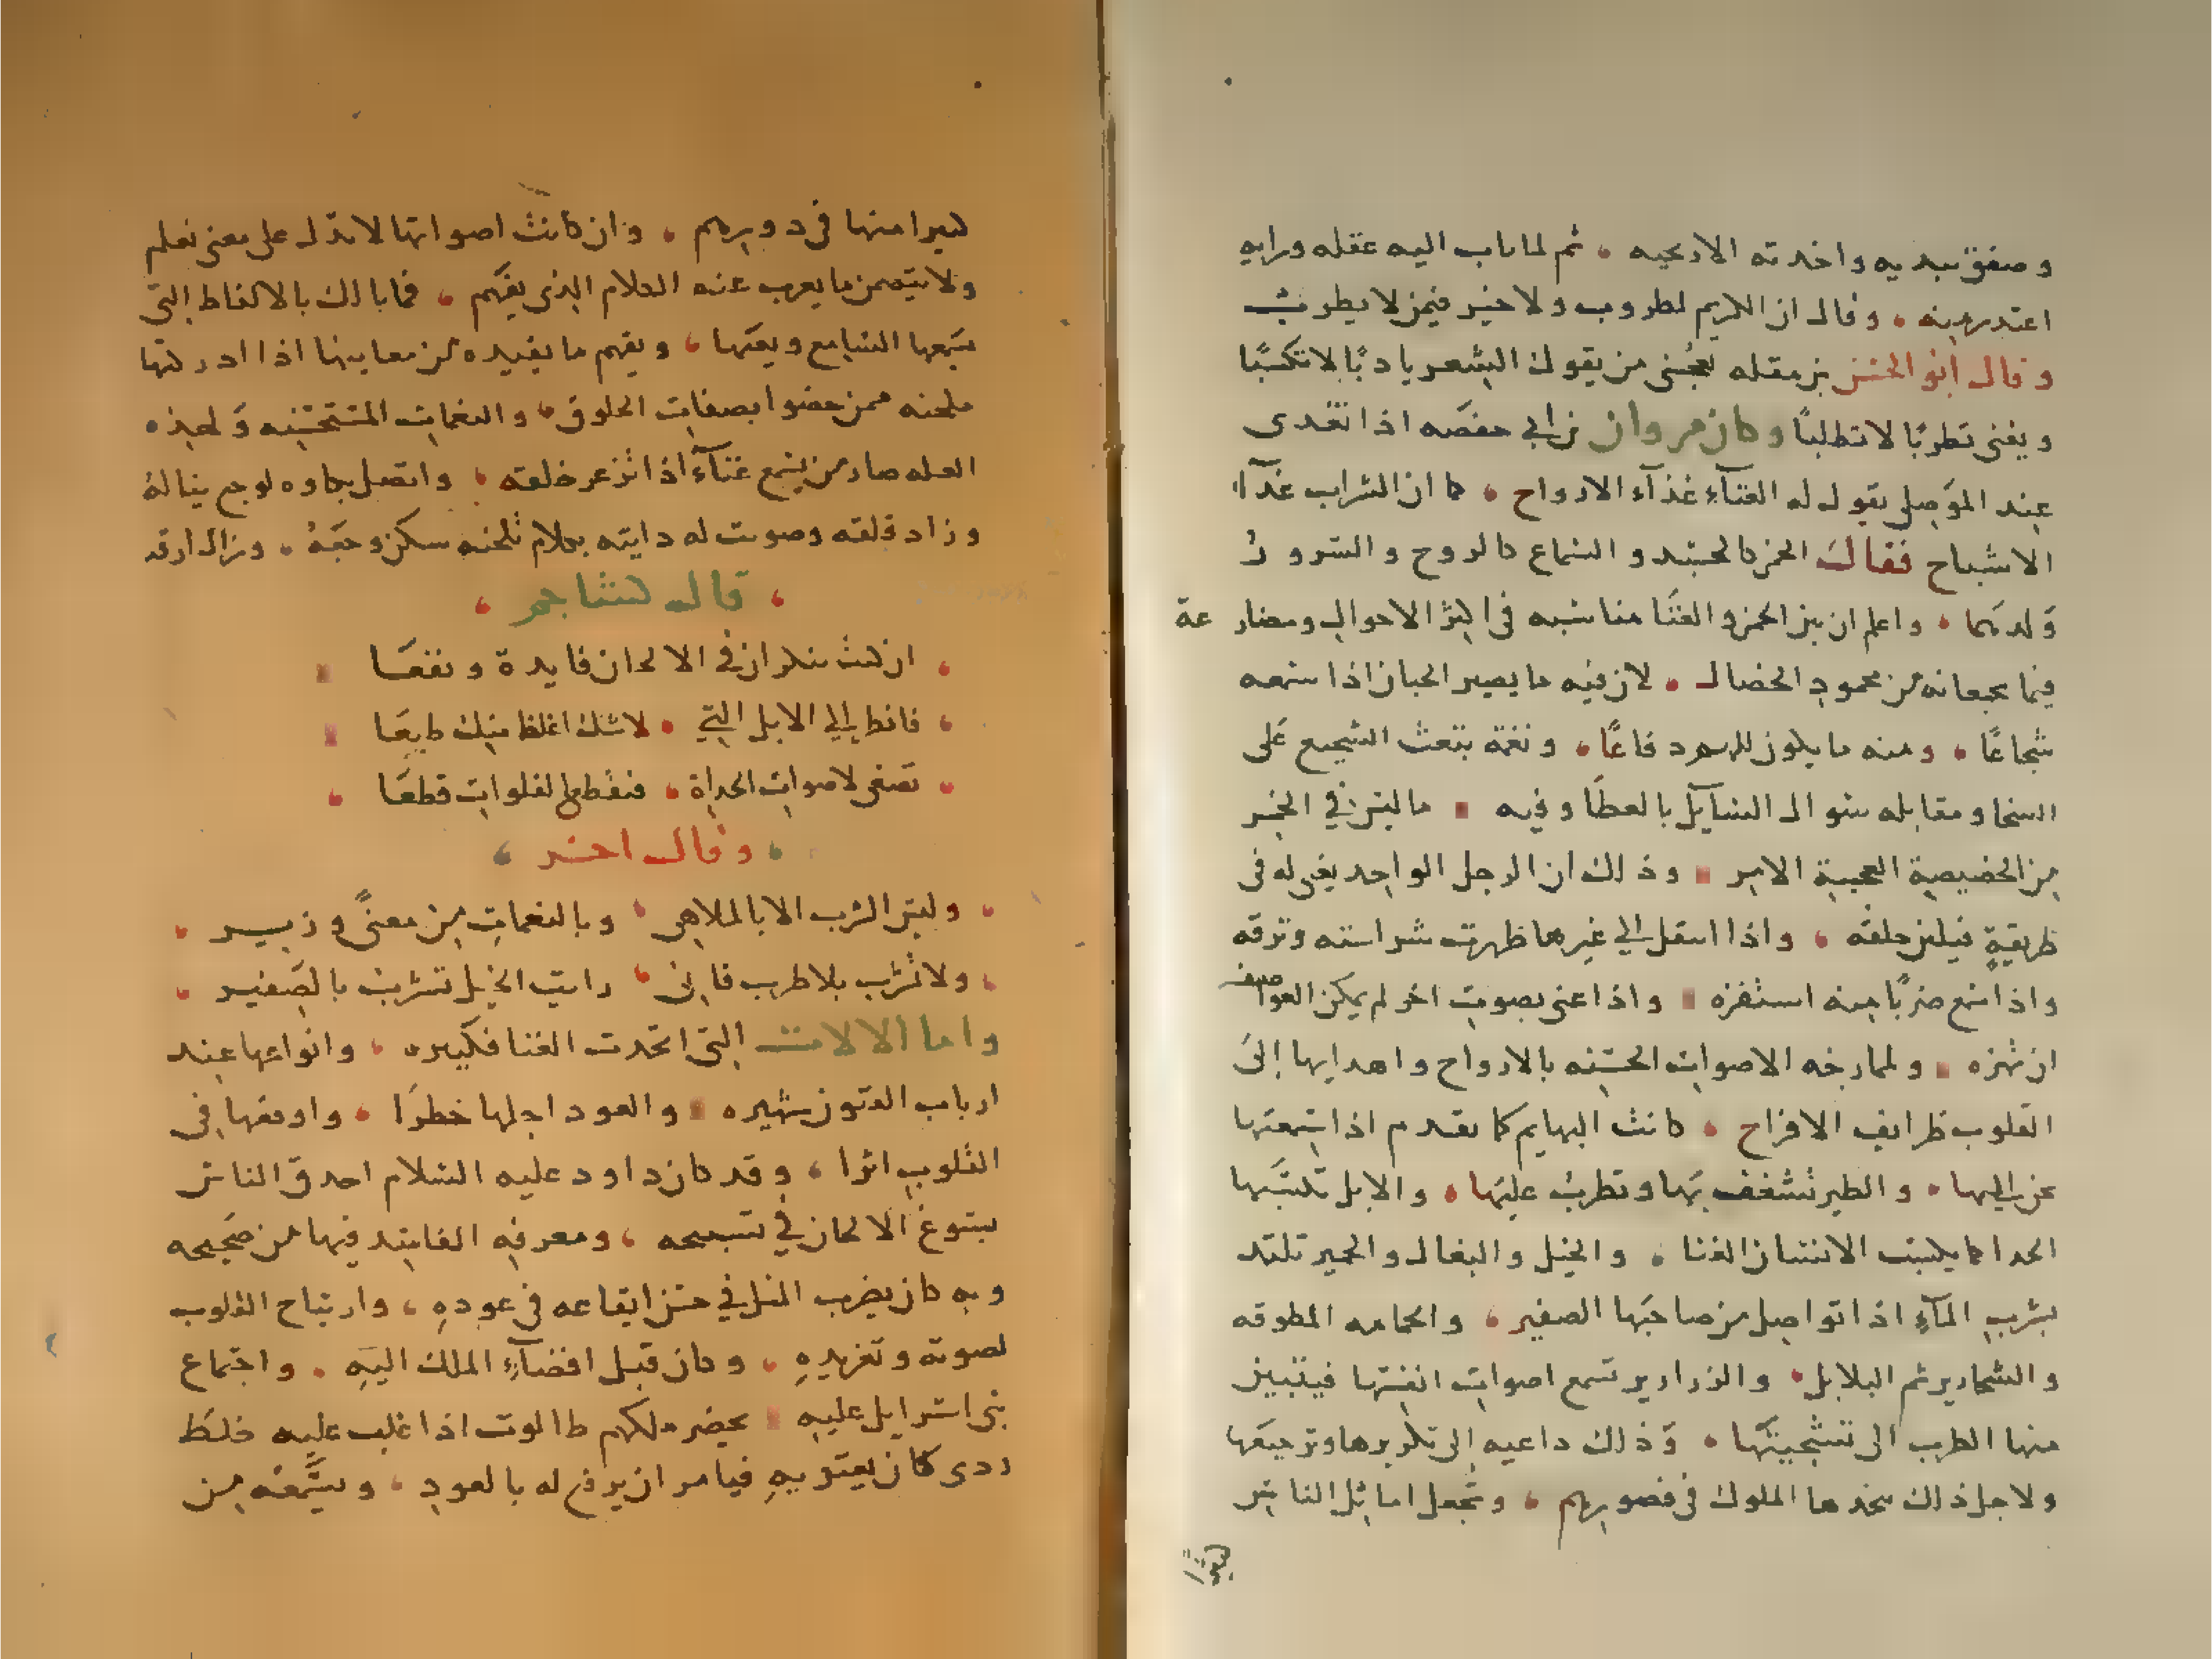 وصفق بيديه واخذته الاريحيه ، ثم لما ثاب اليه عقله ورايه
اعتذر منه ، وقال ان الكريم لطروب ولا خير فيمن لا يطرب
وقال ابو الحسن بن مقله يعجبنى من يقول الشعر يادبًا لا تكسبًا
ويغنى تطربًا لا تطلبًا وكان مروان بن ابي حفصه اذا تغدى
عند الموصلي يقول له الغنآء غذآء الارواح ، كما ان الشراب غذآء
الاشباح فقال الخمر كالجسد و السماع كالروح و السرور
ولدهما ، واعلم ان بين الخمر و الغنا مناسبه في اكثر الاحوال ومضارعة
فيما يجمعانه من محمود الخصال ، لان فيه ما يصير الجبان اذا سمعه
شجاعًا ، ومنه ما يكون للهموم دفاعًا ، ونغمة تبعث الشحيح على
السخا ومقابله سوال السايل بالعطا وفيه ما ليس في الخمر
من الخصيصية العجيبة الامر وذلك ان الرجل الواحد يغنى له فى
طريقةٍ فيلين خلقه ، واذا انتقل الي غيرها ظهرت شراسته ونزقه
واذا سمع ضربًا منه استفزه واذا غنى بصوت اخر لم يمكن العواصف
ان تهزه ولممازجه الاصوات الحسنه بالارواح و اهدايها إلى
القلوب ظرايف الافراح ، كانت البهايم كما تقدم اذا سمعتها
تحن اليها ، و الطير تشغف بها وتطرب عليها ، والابل تكسبها
الحدا كما يكسب الانسان الغنا ، والخيل والبغال والحمير تلتذ
بشرب المآء اذا تواصل من صاحبها الصفير ، والحمامه المطوقه
و الشحارير ثم البلابل ، والزرازير تسمع اصوات انفسها فيتبين
منها الطرب الى تشجيبها ، وذلك داعيه الى تكريرها وترجيعها
ولاجل ذلك يتخذها الملوك في قصورهم ، وتجعل اماثل الناس
كثيرا
كثيرا منها في دورهم ، وان كانت اصواتها لا تدل على معنى تعلم
ولا تتضمن ما يعرب عنه الكلام الذى يفهم ، فما بالك بالالفاظ التى
يتبعها السامع ويعيها ، ويفهم ما يفيده من معانيها اذا ادركتها
ملحنه ممن خصوا بصفات الحلوق ، و النغمات المستحسنه ولهذه
العله صار من يسمع غنآء اذا نزعر خلقه ، واتصل بكاوه لوجع يناله
وزاد قلقه وصوتت له دايته بكلام تلحنه سكن وجعه ، وزال ارقه
، قال كشاجم ،
، ان كنت تنكر ان في الالحان فايدة ونفعًا
، فانظر إلي الابل التي ، لا شك اغلظ منك طبعًا
، تصغى لاصوات الحداة ، فتقطع الفلوات قطعًا ،
، وقال اخر ،
، وليس الشرب الا بالملاهى ، وبالنغمات من معنىً وزير ،
، ولا تشرب بلا طرب فاني ، رايت الخيل تشرب بالصفير ،
واما الالات التى اتخذت الغنا فكثيره ، وانواعها عند
ارباب الفنون شهيره والعود اجلها خطرًا ، واوقعها في
القلوب اثرا ، وقد كان داود عليه السلام احدق الناس
بتنوع الالحان في تسبيحه ، ومعرفه الفاسد فيها من صحيحه
وبه كان يضرب المثل في حسن ايقاعه في عوده ، وارتياح القلوب
لصوته وتغريده ، وكان قبل افضآء الملك اليه ، واجتماع
بنى اسرايل عليه يحضر ملكهم طالوت اذا غلب عليه خلط
ردى كان يعتريه فيامر ان يرفع له بالعود ، ويسمعه من